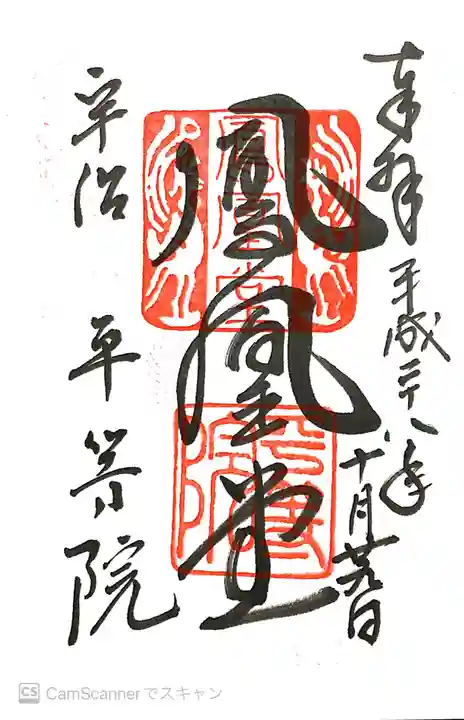 奉拝 平成二十八年十月廿九日
鳳凰堂
宇治 平等院
鳳凰堂
CS CamScanner でスキャン